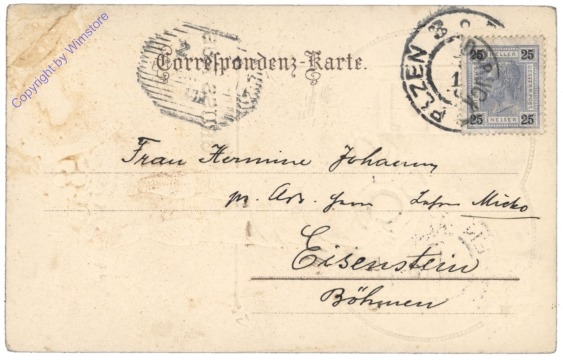 Copyright by Wimstore
Correspondenz-Karte.
PLZEN
25 25
HELLER HELLER
25 25
HELLER
Frau Hermine Johanny
pr. Adr. Herrn Micko
Eisenstein
Böhmen